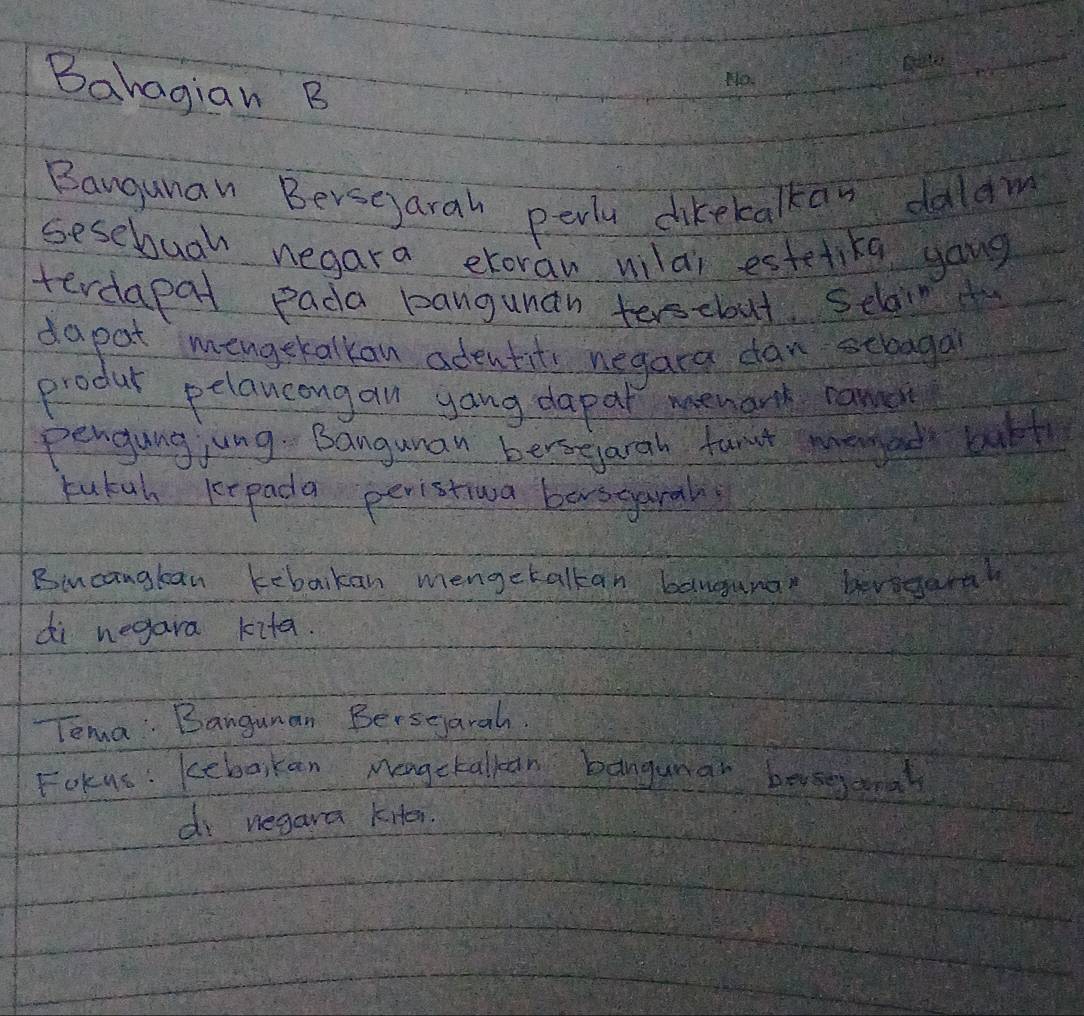 Bahagian B
No. Date
Bangunan Bersejarah perlu dikekalkan dalam
sesebuah negara ekoran nilai estetika yang
terdapat pada bangunan tersebut. Selain itu
dapat mengekalkan adentiti negara dan sebagai
produk pelancongan yang dapat menarik ramai
pengungjung. Bangunan bersejarah turut menjadi bukti
kukuh kepada peristiwa bersejarah.
Bincangkan kebaikan mengekalkan bangunan bersejarah
di negara kita.
Tema: Bangunan Bersejarah.
Fokus: Kebaikan Mengekalkan bangunan bersejarah
di negara kita.